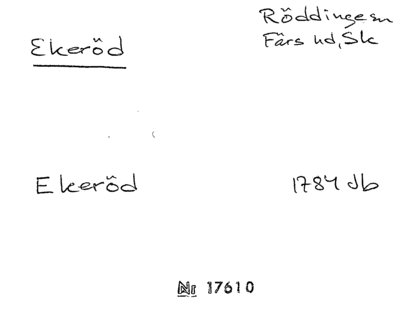 Ekeröd
Röddinge sn
Färs hd, Sk
Ekeröd
1784 db
Nr 17610